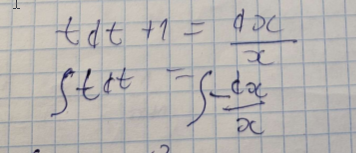 t dt + 1 = dx/x
∫ t dt = ∫ -dx/x